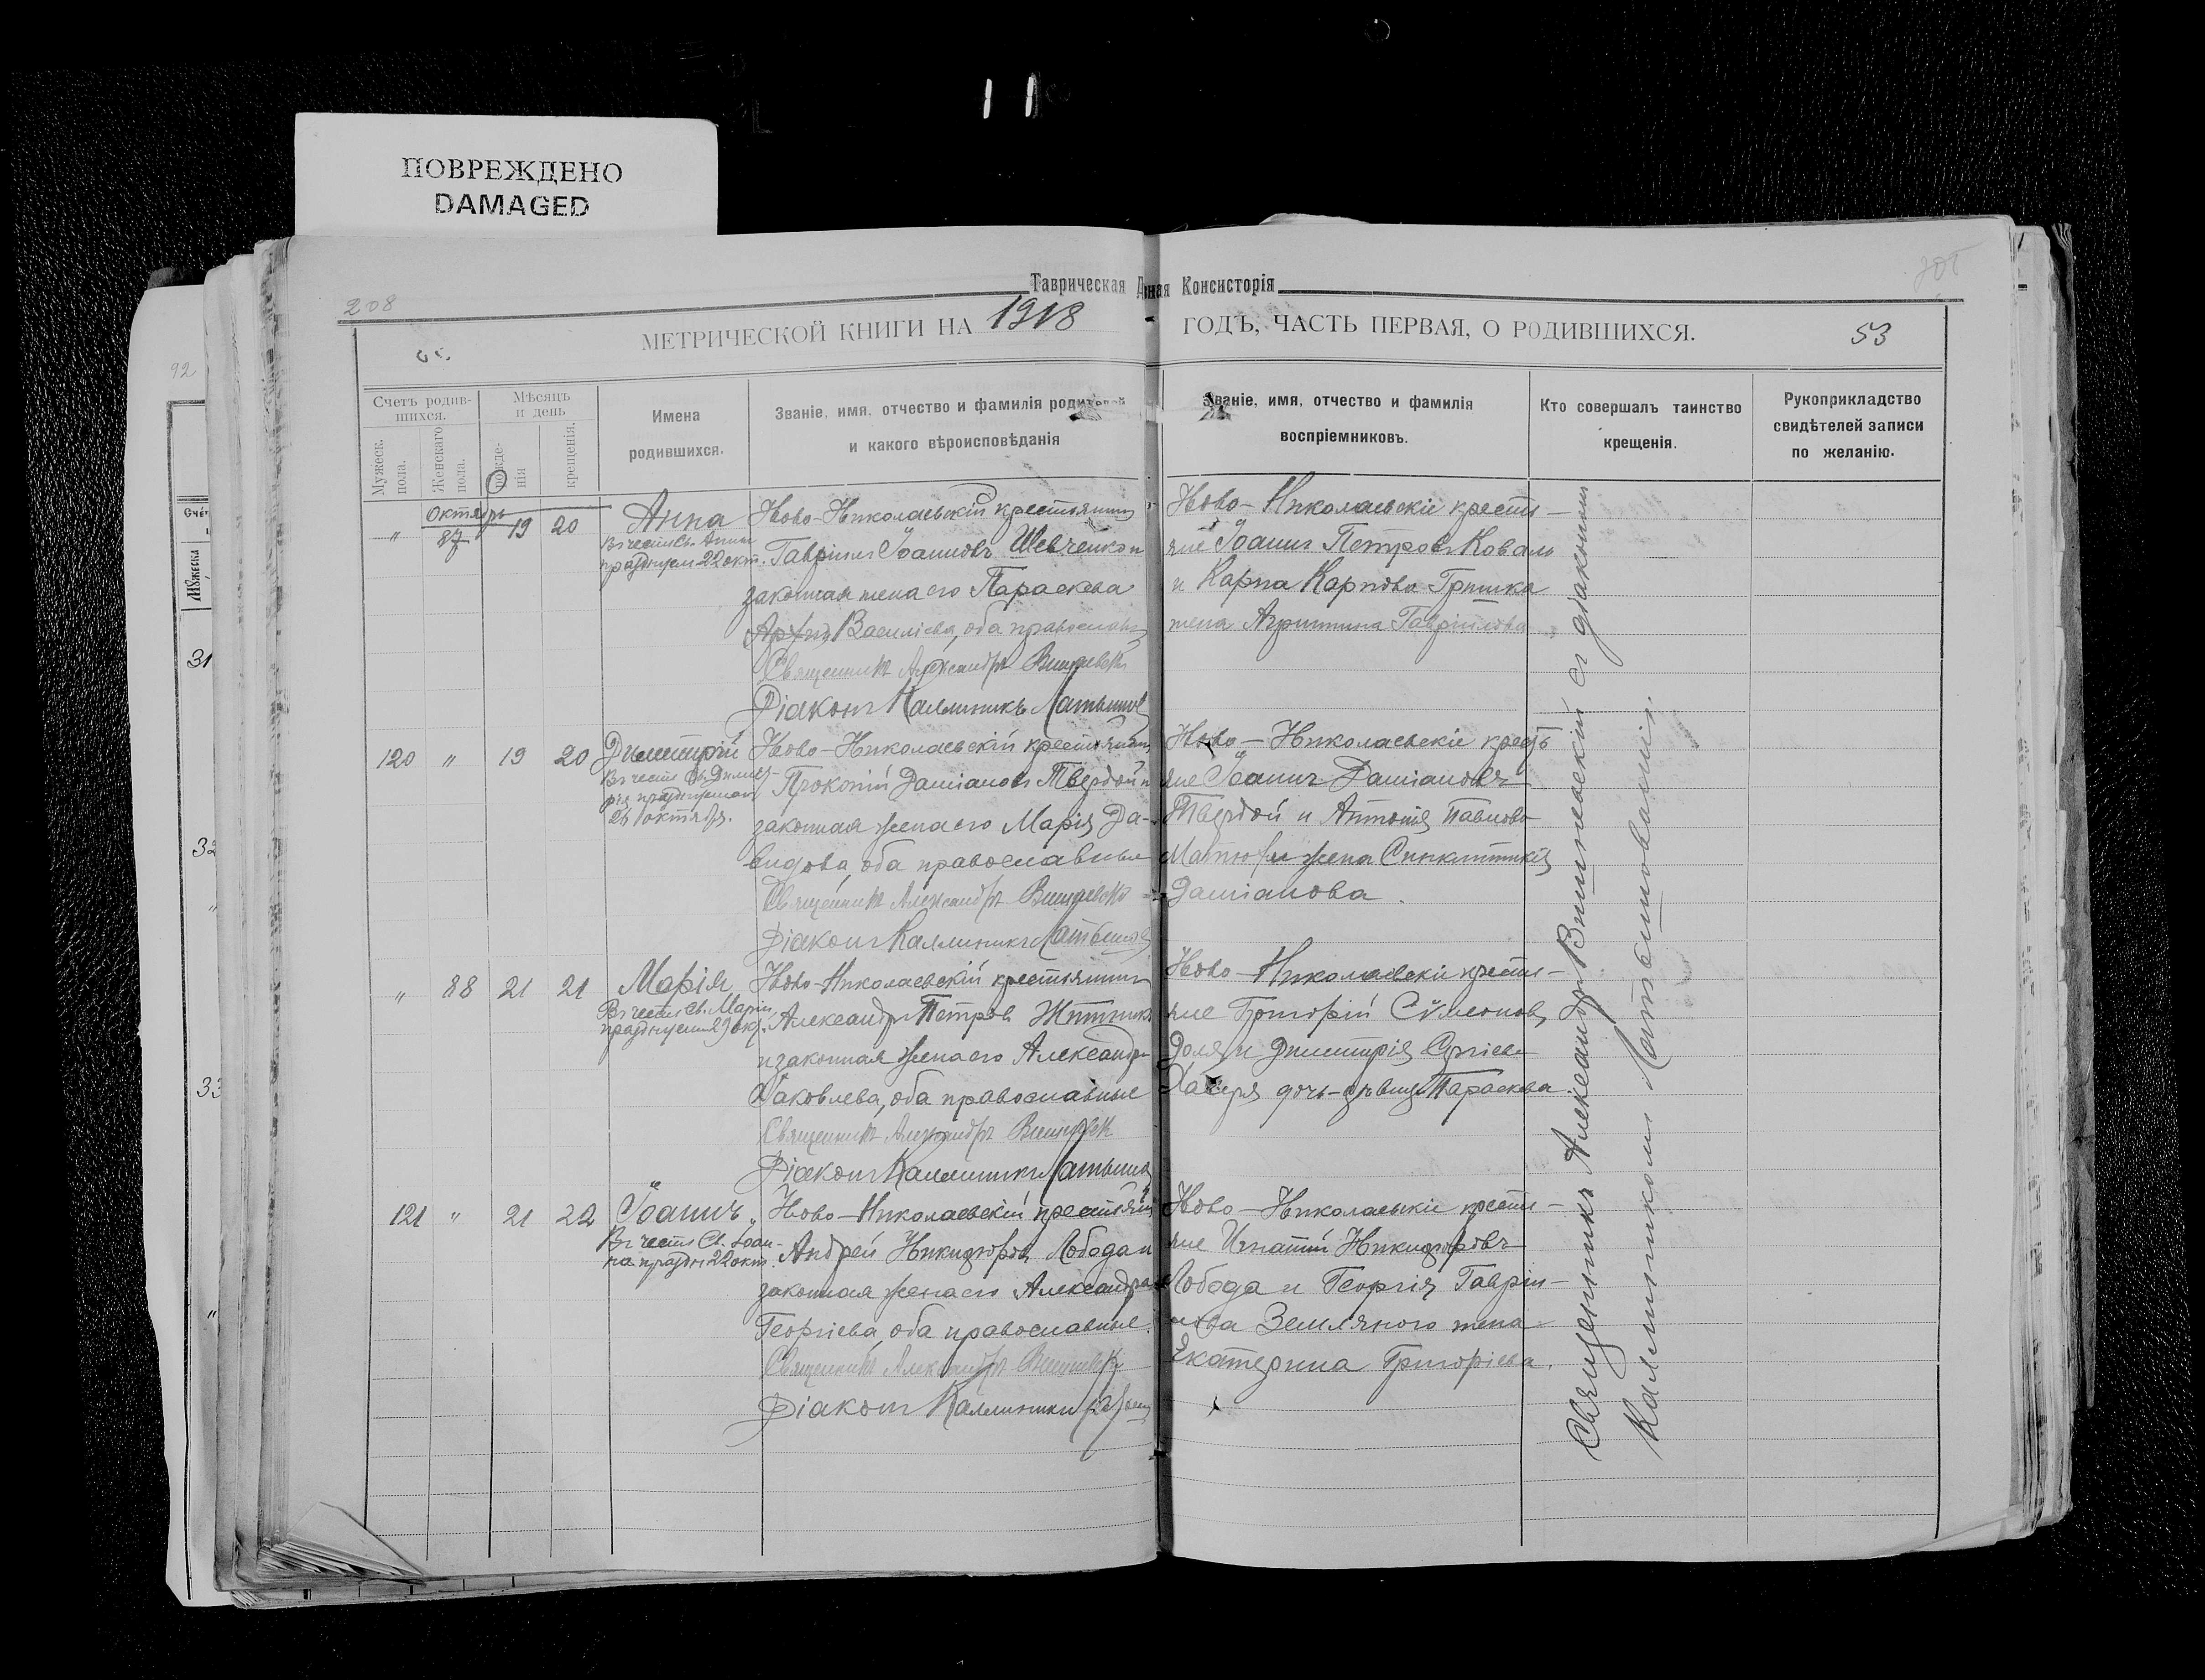 ПОВРЕЖДЕНО
DAMAGED
208
Таврическая Д ная Консисторія
МЕТРИЧЕСКОЙ КНИГИ НА 1918 ГОДЪ, ЧАСТЬ ПЕРВАЯ, О РОДИВШИХСЯ.
53
92
Счетъ родив-
шихся.
Мѣсяцъ
и день
Мужеск.
пола.
Женскаго
пола.
рожде-
нія
крещенія.
Имена
родившихся.
Званіе, имя, отчество и фамилія родителей
и какого вѣроисповѣданія
Званіе, имя, отчество и фамилія
воспріемниковъ.
Кто совершалъ таинство
крещенія.
Рукоприкладство
свидѣтелей записи
по желанію.
31
32
33
Октябрь
" 87 19 20
Анна
Въ честь Св. Анны
празднуем 22 окт.
Ново-Николаевскій крестьянинъ
Гавріилъ Іоанновъ Шевченко и
законная жена его Параскева
Василіева, оба православн
Священникъ Александръ Вишневск
Діаконъ Каллиникъ
Ново-Николаевскіе крестья-
не Іоаннъ Петровъ Коваль
и Карпа Карпова Гришка
жена Агриппина Гавріилова
120 " 19 20
Димитрій
Въ честь Св. Дими-
рія празднуемаго
26 октября.
Ново-Николаевскій крестьянинъ
Прокопій Даміановъ Твердой и
законная жена его Марія Да-
видова, оба православные
Священникъ Александръ Вишневск
Діаконъ Каллиникъ
Ново-Николаевскіе кресть
яне Іоаннъ Даміановъ
Твердой и Антонія Павлова
жена Синклитикія
Даміанова.
" 88 21 21
Марія
Въ честь Св. Маріи,
празднуем 29 окт.
Ново-Николаевскій крестьянинъ
Александръ Петровъ Житник
и законная жена его Александра
Іаковлева, оба православные
Священникъ Александръ Вишневск
Діаконъ Каллиникъ
Ново-Николаевскіе крестья-
не Григорій Сѵмеоновъ
Доля и Димитрія Сергіева
дочь-дѣвица Параскева
121 " 21 22
Іоаннъ
Въ честь Св. Іоан-
на праздн 22 окт.
Ново-Николаевскій крестьянинъ
Андрей Никифоровъ Лобода и
законная жена его Александра
Георгіева, оба православные.
Священникъ Александръ Вишневск
Діаконъ Каллиникъ
Ново-Николаевскіе крестья-
не Игнатій Никифоровъ
Лобода и Георгія Гаврі-
лова Земляного жена
Екатерина Григоріева.
Священникъ Александръ Вишневскій съ діакономъ
Каллиникомъ